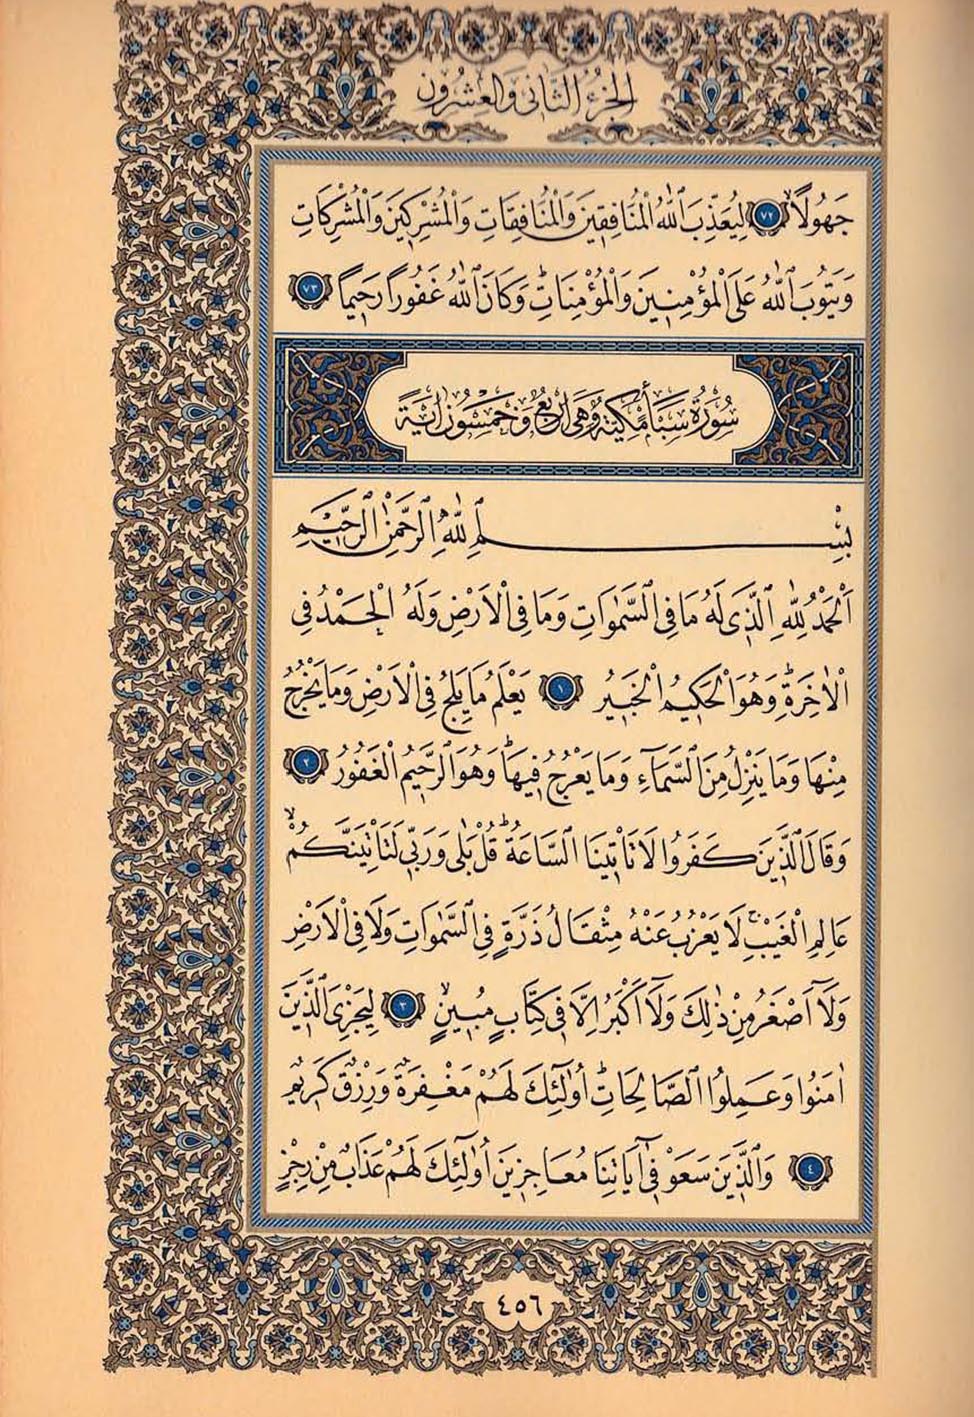 الجزء الثانى والعشرون
جَهُولًاۙ ﴿٧٢﴾ لِيُعَذِّبَ ٱللّٰهُ الْمُنَافِقِينَ وَالْمُنَافِقَاتِ وَالْمُشْرِكِينَ وَالْمُشْرِكَاتِ
وَيَتُوبَ ٱللّٰهُ عَلَى الْمُؤْمِنِينَ وَالْمُؤْمِنَاتِۜ وَكَانَ ٱللّٰهُ غَفُورًا رَحِيمًا ﴿٧٣﴾
سُورَةُ سَبَأٍ مَكِّيَّةٌ وَهِيَ أَرْبَعٌ وَخَمْسُونَ اٰيَةً
بِسْمِ ٱللّٰهِ ٱلرَّحْمٰنِ ٱلرَّحِيمِ
اَلْحَمْدُ لِلّٰهِ ٱلَّذِى لَهُ مَا فِى السَّمٰوَاتِ وَمَا فِى الْاَرْضِ وَلَهُ الْحَمْدُ فِى
الْاٰخِرَةِۜ وَهُوَ الْحَكِيمُ الْخَبِيرُ ﴿١﴾ يَعْلَمُ مَا يَلِجُ فِى الْاَرْضِ وَمَا يَخْرُجُ
مِنْهَا وَمَا يَنْزِلُ مِنَ السَّمَآءِ وَمَا يَعْرُجُ فِيهَاۜ وَهُوَ الرَّحِيمُ الْغَفُورُ ﴿٢﴾
وَقَالَ ٱلَّذِينَ كَفَرُوا لَا تَاْتِينَا السَّاعَةُۜ قُلْ بَلٰى وَرَبِّى لَتَاْتِيَنَّكُمْۙ
عَالِمِ الْغَيْبِۚ لَا يَعْزُبُ عَنْهُ مِثْقَالُ ذَرَّةٍ فِى السَّمٰوَاتِ وَلَا فِى الْاَرْضِ
وَلَآ اَصْغَرُ مِنْ ذٰلِكَ وَلَآ اَكْبَرُ اِلَّا فِى كِتَابٍ مُبِينٍۙ ﴿٣﴾ لِيَجْزِىَ الَّذِينَ
اٰمَنُوا وَعَمِلُوا الصَّالِحَاتِۜ أُولٰٓئِكَ لَهُمْ مَغْفِرَةٌ وَرِزْقٌ كَرِيمٌ
﴿٤﴾ وَٱلَّذِينَ سَعَوْ فِىٓ اٰيَاتِنَا مُعَاجِزِينَ أُولٰٓئِكَ لَهُمْ عَذَابٌ مِنْ رِجْزٍ
٤٥٦